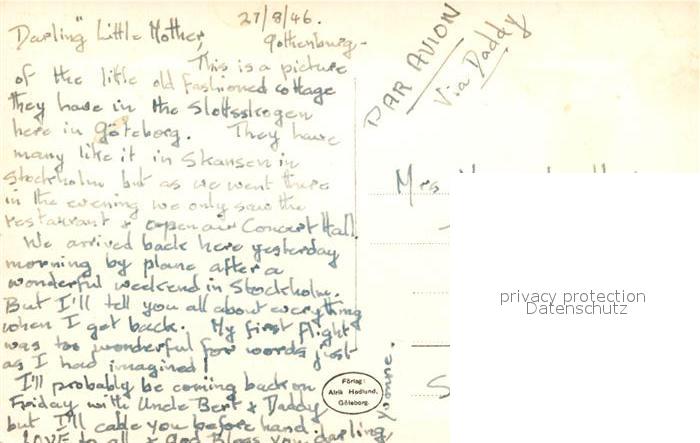 27/8/46.
Gothenburg-
Darling Little Mother,
This is a picture
of the little old fashioned cottage
they have in the Slottsskogen
here in Göteborg. They have
many like it in Skansen in
Stockholm but as we went there
in the evening we only saw the
restaurant & open air Concert Hall.
We arrived back here yesterday
morning by plane after a
wonderful weekend in Stockholm.
But I'll tell you all about everything
when I get back. My first flight
was too wonderful for words just
as I had imagined!
I'll probably be coming back on
Friday with Uncle Bert & Daddy
but I'll cable you before hand.
LOVE to all & God Bless you darling
Yvonne.
PAR AVION
Via Daddy
Mrs
S
Förlag:
Alrik Hedlund,
Göteborg.
privacy protection
Datenschutz